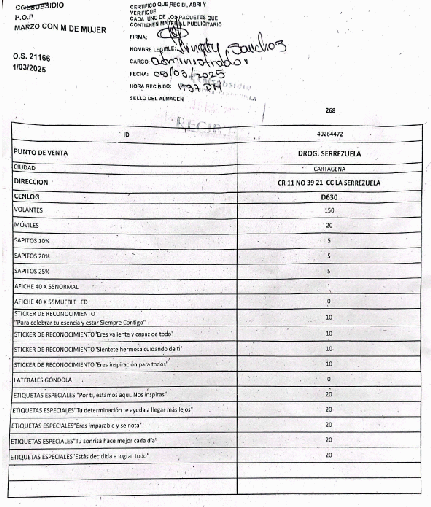 COLSUBSIDIO
P.O.P
MARZO CON M DE MUJER
O.S. 21166
1/03/2025
CERTIFICO QUE RECIBI, ABRI Y
VERIFIQUE
CADA UNO DE LOS PAQUETES QUE
CONTIENEN MATERIAL PUBLICITARIO
FIRMA:
NOMBRE Sanchez
CARGO: administrador
FECHA: 05/03/2025
HORA RECIBIDO:
SELLO DEL ALMACEN
268
ID
PUNTO DE VENTA DROG. SERREZUELA
CIUDAD CARTAGENA
DIRECCION CR 11 NO 39 21 CC LA SERREZUELA
CENLOG D630
VOLANTES 150
MÓVILES 20
SAPITOS 10% 5
SAPITOS 20% 5
SAPITOS 25% 5
AFICHE 40 X 55 NORMAL
AFICHE 40 X 55 MUEBLE LED 0
STICKER DE RECONOCIMIENTO
"Para celebrar tu esencia y estar Siempre Contigo" 10
STICKER DE RECONOCIMIENTO "Eres valiente y capaz de todo" 10
STICKER DE RECONOCIMIENTO "Siéntete hermosa cuidando de ti" 10
STICKER DE RECONOCIMIENTO "Eres inspiración para todos" 10
LATERALES GÓNDOLA 0
ETIQUETAS ESPECIALES "Por ti, estamos aquí. Nos inspiras" 20
ETIQUETAS ESPECIALES "Tu determinación te ayuda a llegar más lejos" 20
ETIQUETAS ESPECIALES "Eres imparable y se nota" 20
ETIQUETAS ESPECIALES "Tu sonrisa hace mejor cada día" 20
ETIQUETAS ESPECIALES "Estás decidida a lograr todo" 20